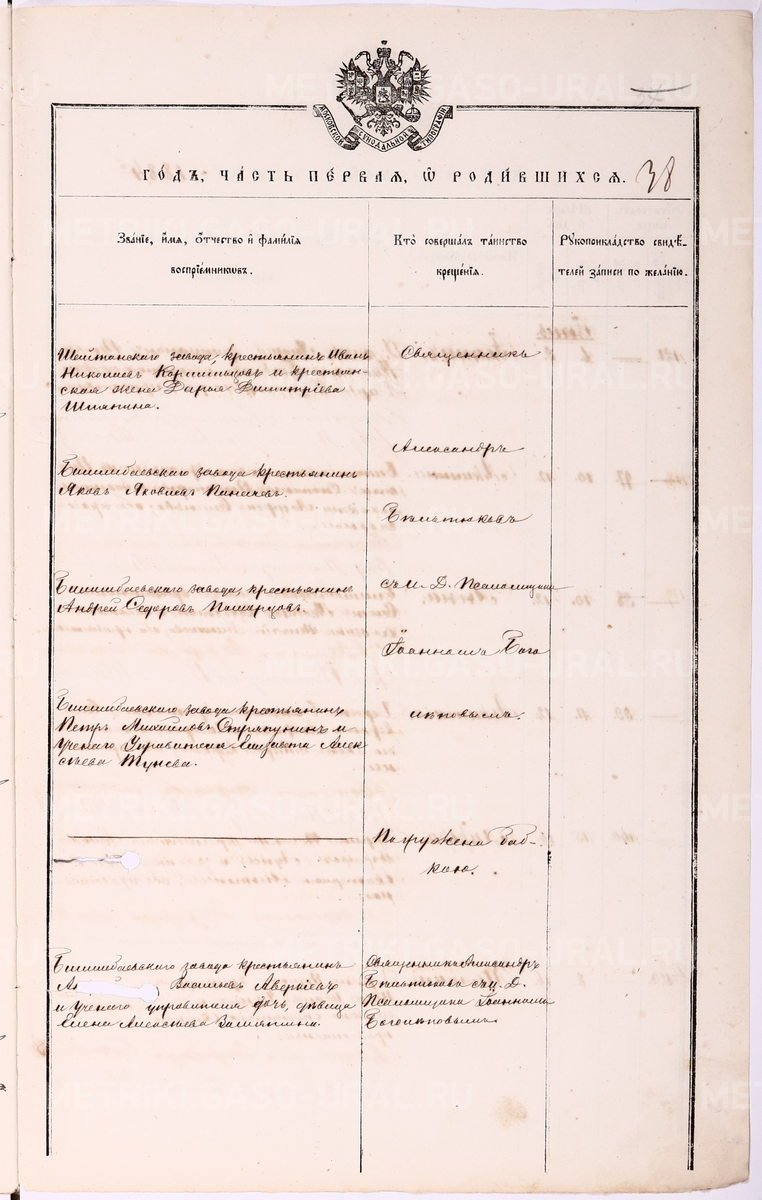 МОСКОВСКОЙ СѴНОДАЛЬНОЙ ТИПОГРАФІИ
ГОДЪ, ЧАСТЬ ПЕРВАЯ, Ѡ РОДИВШИХСЯ. 38
Званіе, имя, отчество и фамилія
воспріемниковъ.
Кто совершалъ таинство
крещенія.
Рукоприкладство свидѣ-
телей записи по желанію.
Шайтанскаго завода, крестьянинъ Иванъ
Николаевъ Кормильцовъ и крестьян-
ская жена Дарья Димитріева
Шляпина.
Священникъ
Александръ
Билимбаевскаго завода крестьянинъ
Яковъ Яковлевъ Паначевъ.
Бѣльтюковъ
Билимбаевскаго завода, крестьянинъ
Андрей Ѳедоровъ
съ И. Д. Псаломщика
Іоанномъ Бого
Билимбаевскаго завода крестьянинъ
Петръ Михайловъ Стряпунинъ и
Ученаго Управителя Елизавета Алек
сѣева
явленымъ.
Погружена баб-
кою.
Билимбаевскаго завода крестьянинъ
Васильевъ Аверкіевъ
и Ученаго управителя дочь, дѣвица
Елена Алексѣева Замятина.
Священникъ Александръ
Бѣльтюковъ съ И. Д.
Псаломщика Іоанномъ
METRIKI.GASO-URAL.RU